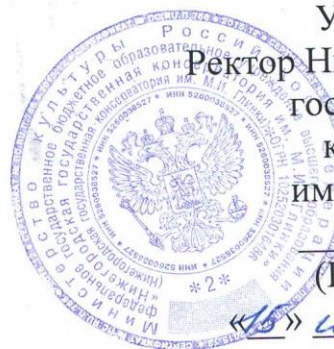 У
Ректор Н
гос
к
им
(
«15» и
Министерство культуры Российской
федеральное государственное бюджетное образовательное учреждение высшего образования
«Нижегородская государственная консерватория им. М.И. Глинки»
ИНН 5260038527 * ИНН 5260038527 * ИНН 5260038527
*2*